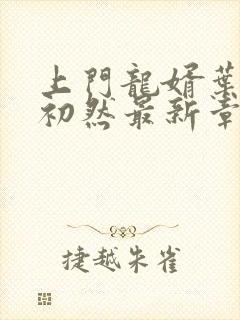 上門龍婿葉
初然最新章
捷越朱雀